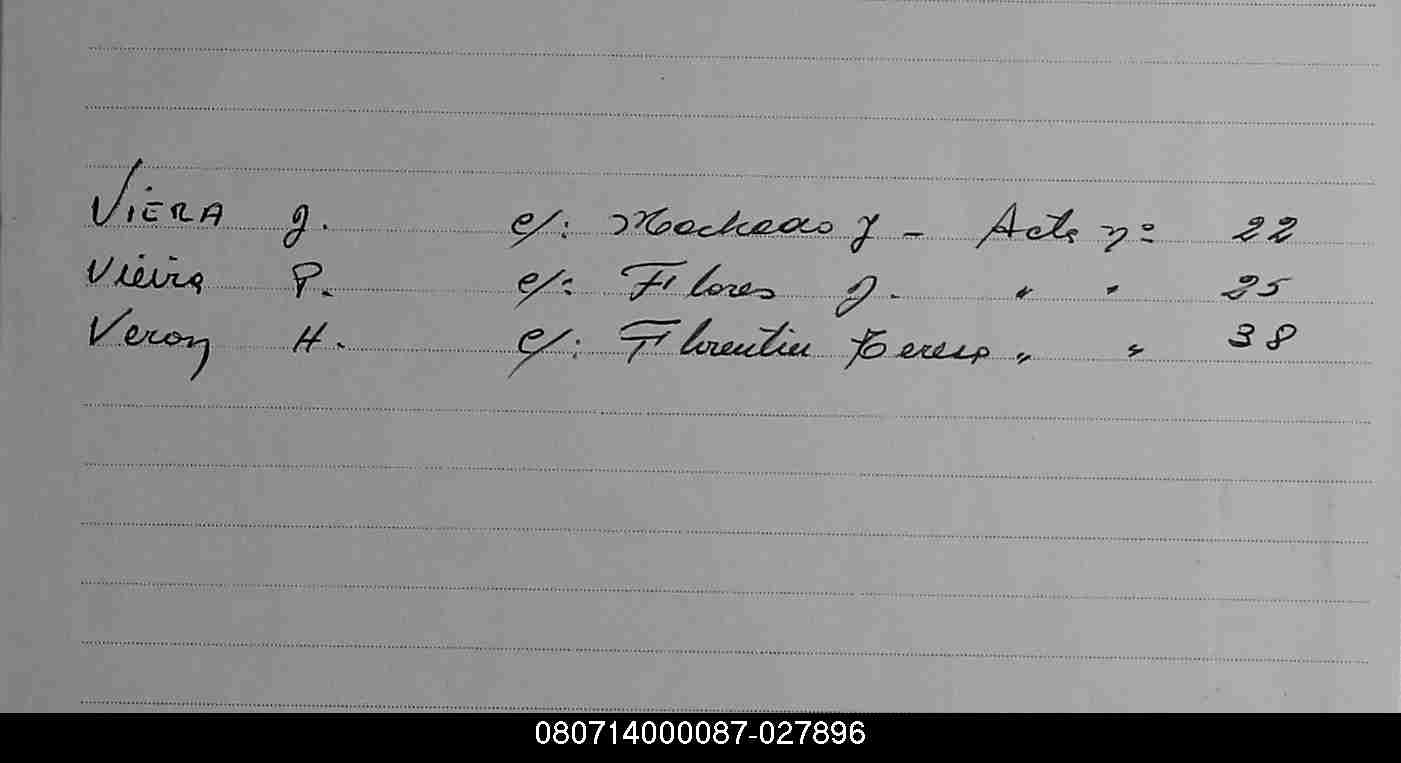 VIERA J. c/: Machado J - Acta nº 22
Vieira P. c/: Flores J. " " 25
Veron H. c/: Florentin Teresa " " 38
080714000087-027896